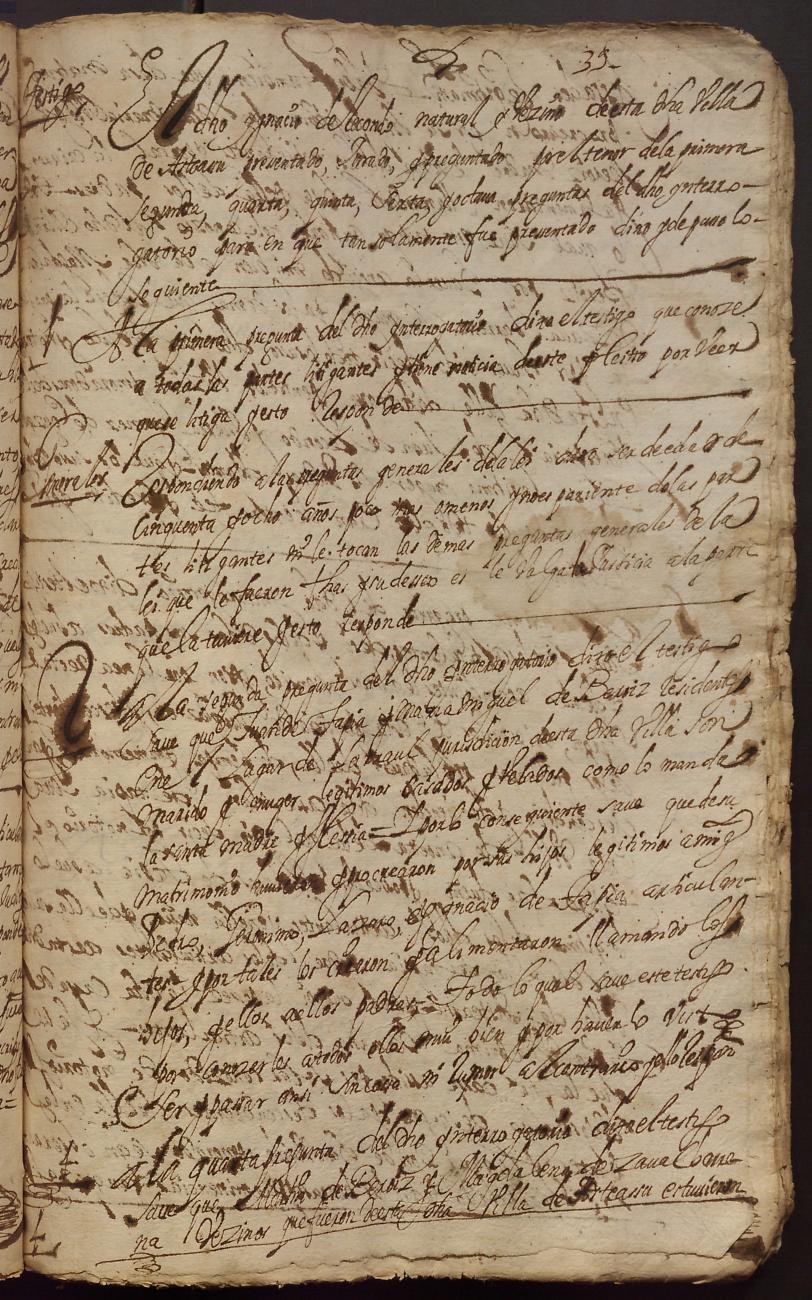 35
Testigo
El dho ygnacio de lecondo natural y Vezino de esta dha Villa
de Arteaçu Presentado, Jurado, y preguntado por el tenor de la primera
Segunda, quarta, quinta, Sexta, y octava preguntas del dho ynterro-
gatorio para en que tan solamente fue presentado dixo y depuso lo
Seguiente
1 A la primera pregunta del dho ynterrogatorio dixo el testigo que conoze
a todas las partes litigantes y tiene noticia de este Pleito por veer
que se litiga y esto Responde
Generales Respondiendo a las preguntas generales de la lei dixo ser de edad de
Cinquenta y ocho años poco mas o menos y no es pariente de las par
tes litigantes ni le tocan las demas preguntas generales de la
lei que le fueron fhas y su desseo es le Valga la Justicia a la parte
que la tuviere y esto responde
2 A la segunda pregunta del dho ynterrogatorio dixo el testigo
Save que Juan de Tapia y Maria Miguel de Beroiz residentes
en el lugar de jurisdicion de esta dha Villa son
Marido y muger legitimos casados y Velados como lo manda
la santa Madre yglesia = Y por lo conseguiente save que de su
Matrimonio huvieron y procrearon por sus hijos legitimos a
Pedro, Geronimo, Lazaro, e ygnacio de Tapia articulan-
tes y por tales los criaron y alimentaron llamando los
hijos, y ellos a ellos padres = Todo lo qual save este testigo
por conozer les a todos ellos mui bien y por haverlo visto
Ser y passar ansi sin cosa ni rumor al contrario y esto responde
4 A la quarta pregunta del dho ynterrogatorio dixo el testigo
save que Martin de Beroiz y Magdalena de Zavalo
na Vezinos que fueron de esta dha Villa de Arteassu estuvieron